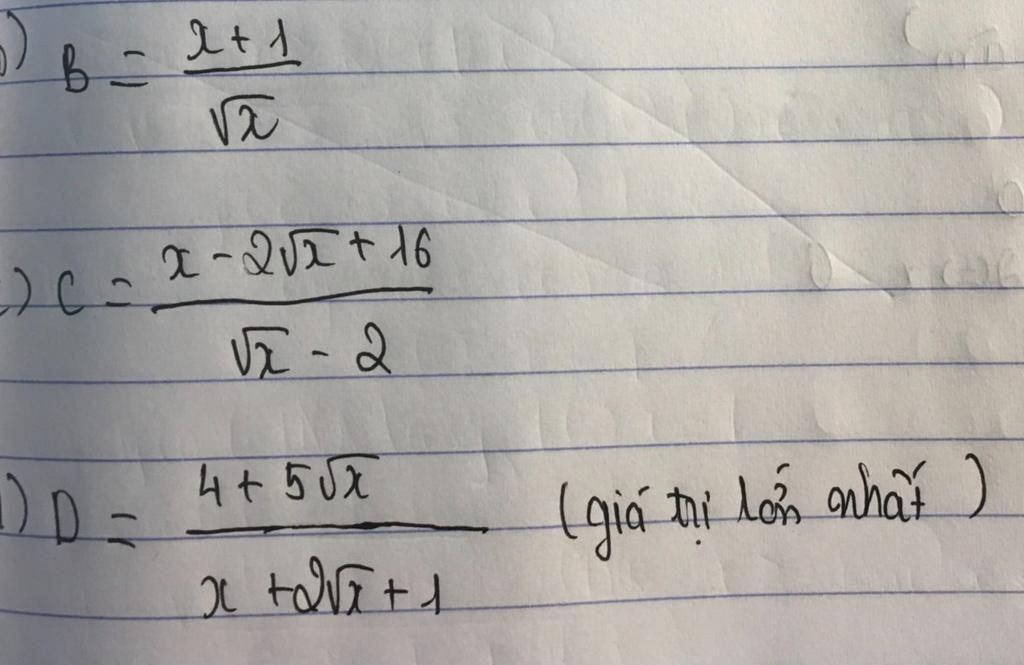 ) B = \frac{x + 1}{\sqrt{x}}
) C = \frac{x - 2\sqrt{x} + 16}{\sqrt{x} - 2}
) D = \frac{4 + 5\sqrt{x}}{x + 2\sqrt{x} + 1} (giá trị lớn nhất)